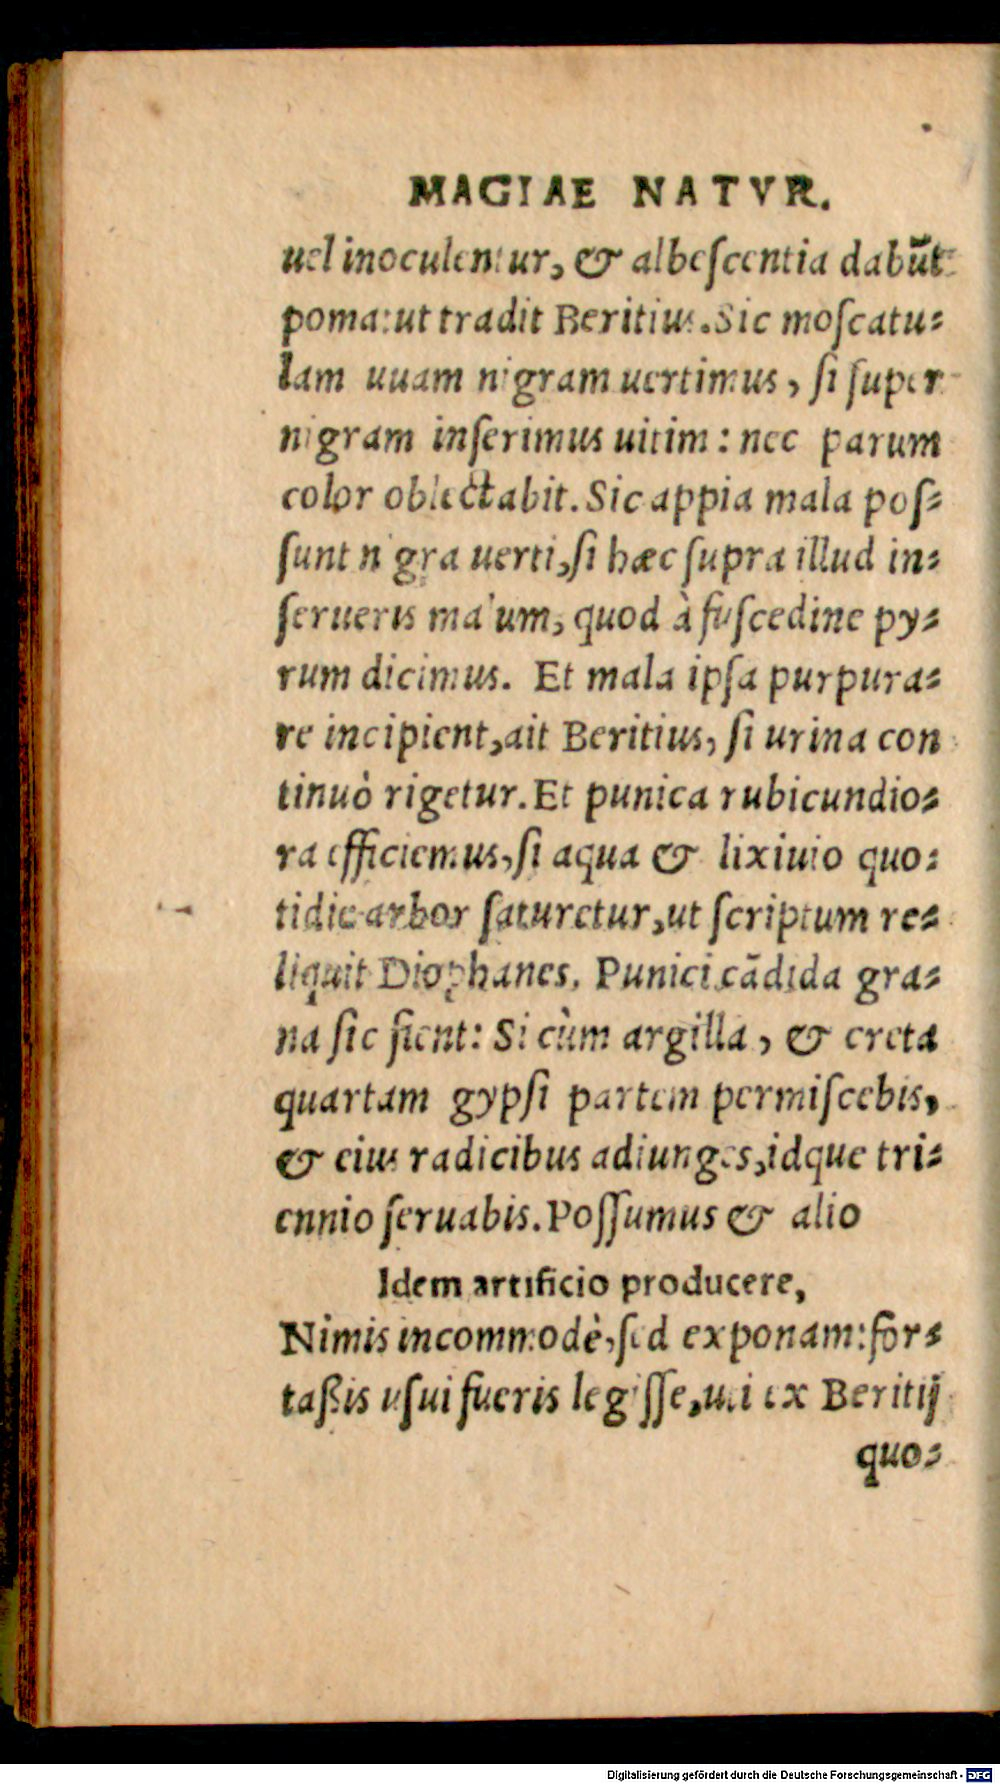 MAGIAE NATVR.
uel inoculentur, & albescentia dabũt
poma: ut tradit Beritius. Sic moscatu=
lam uuam nigram uertimus, si super
nigram inserimus uitim: nec parum
color oblectabit. Sic appia mala pos=
sunt nigra uerti, si hæc supra illud in=
serueris malum, quod à fuscedine py=
rum dicimus. Et mala ipsa purpura=
re incipient, ait Beritius, si urina con
tinuò rigetur. Et punica rubicundio=
ra efficiemus, si aqua & lixiuio quo=
tidie arbor saturetur, ut scriptum re=
liquit Diophanes. Punici cãdida gra=
na sic fient: Si cùm argilla, & creta
quartam gypsi partem permiscebis,
& eius radicibus adiunges, idque tri=
ennio seruabis. Possumus & alio
Idem artificio producere,
Nimis incommodè, sed exponam: for=
taßis usui fueris legisse, uti ex Beritij
quo=
Digitalisierung gefördert durch die Deutsche Forschungsgemeinschaft - DFG